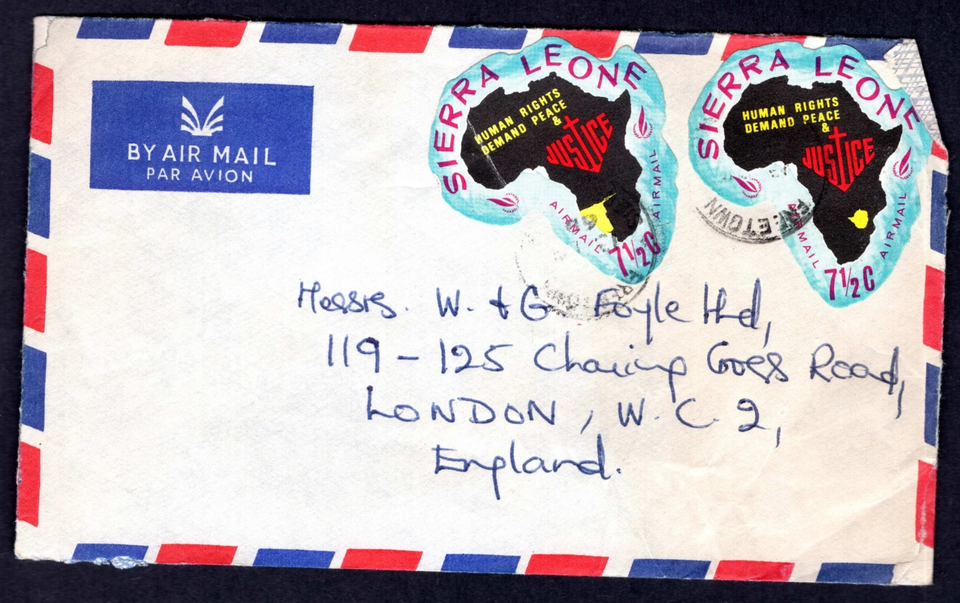 BY AIR MAIL
PAR AVION
SIERRA LEONE
HUMAN RIGHTS
DEMAND PEACE
&
JUSTICE
AIRMAIL
AIRMAIL
7½C
SIERRA LEONE
HUMAN RIGHTS
DEMAND PEACE
&
JUSTICE
AIRMAIL
AIRMAIL
7½C
FREETOWN
Messrs. W. & G. Foyle Ltd,
119-125 Charing Cross Road,
LONDON, W.C.2,
England.